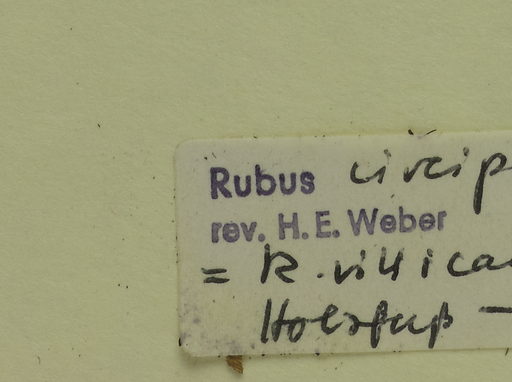 Rubus circip
rev. H. E. Weber
= R. villica
Holzfuß —